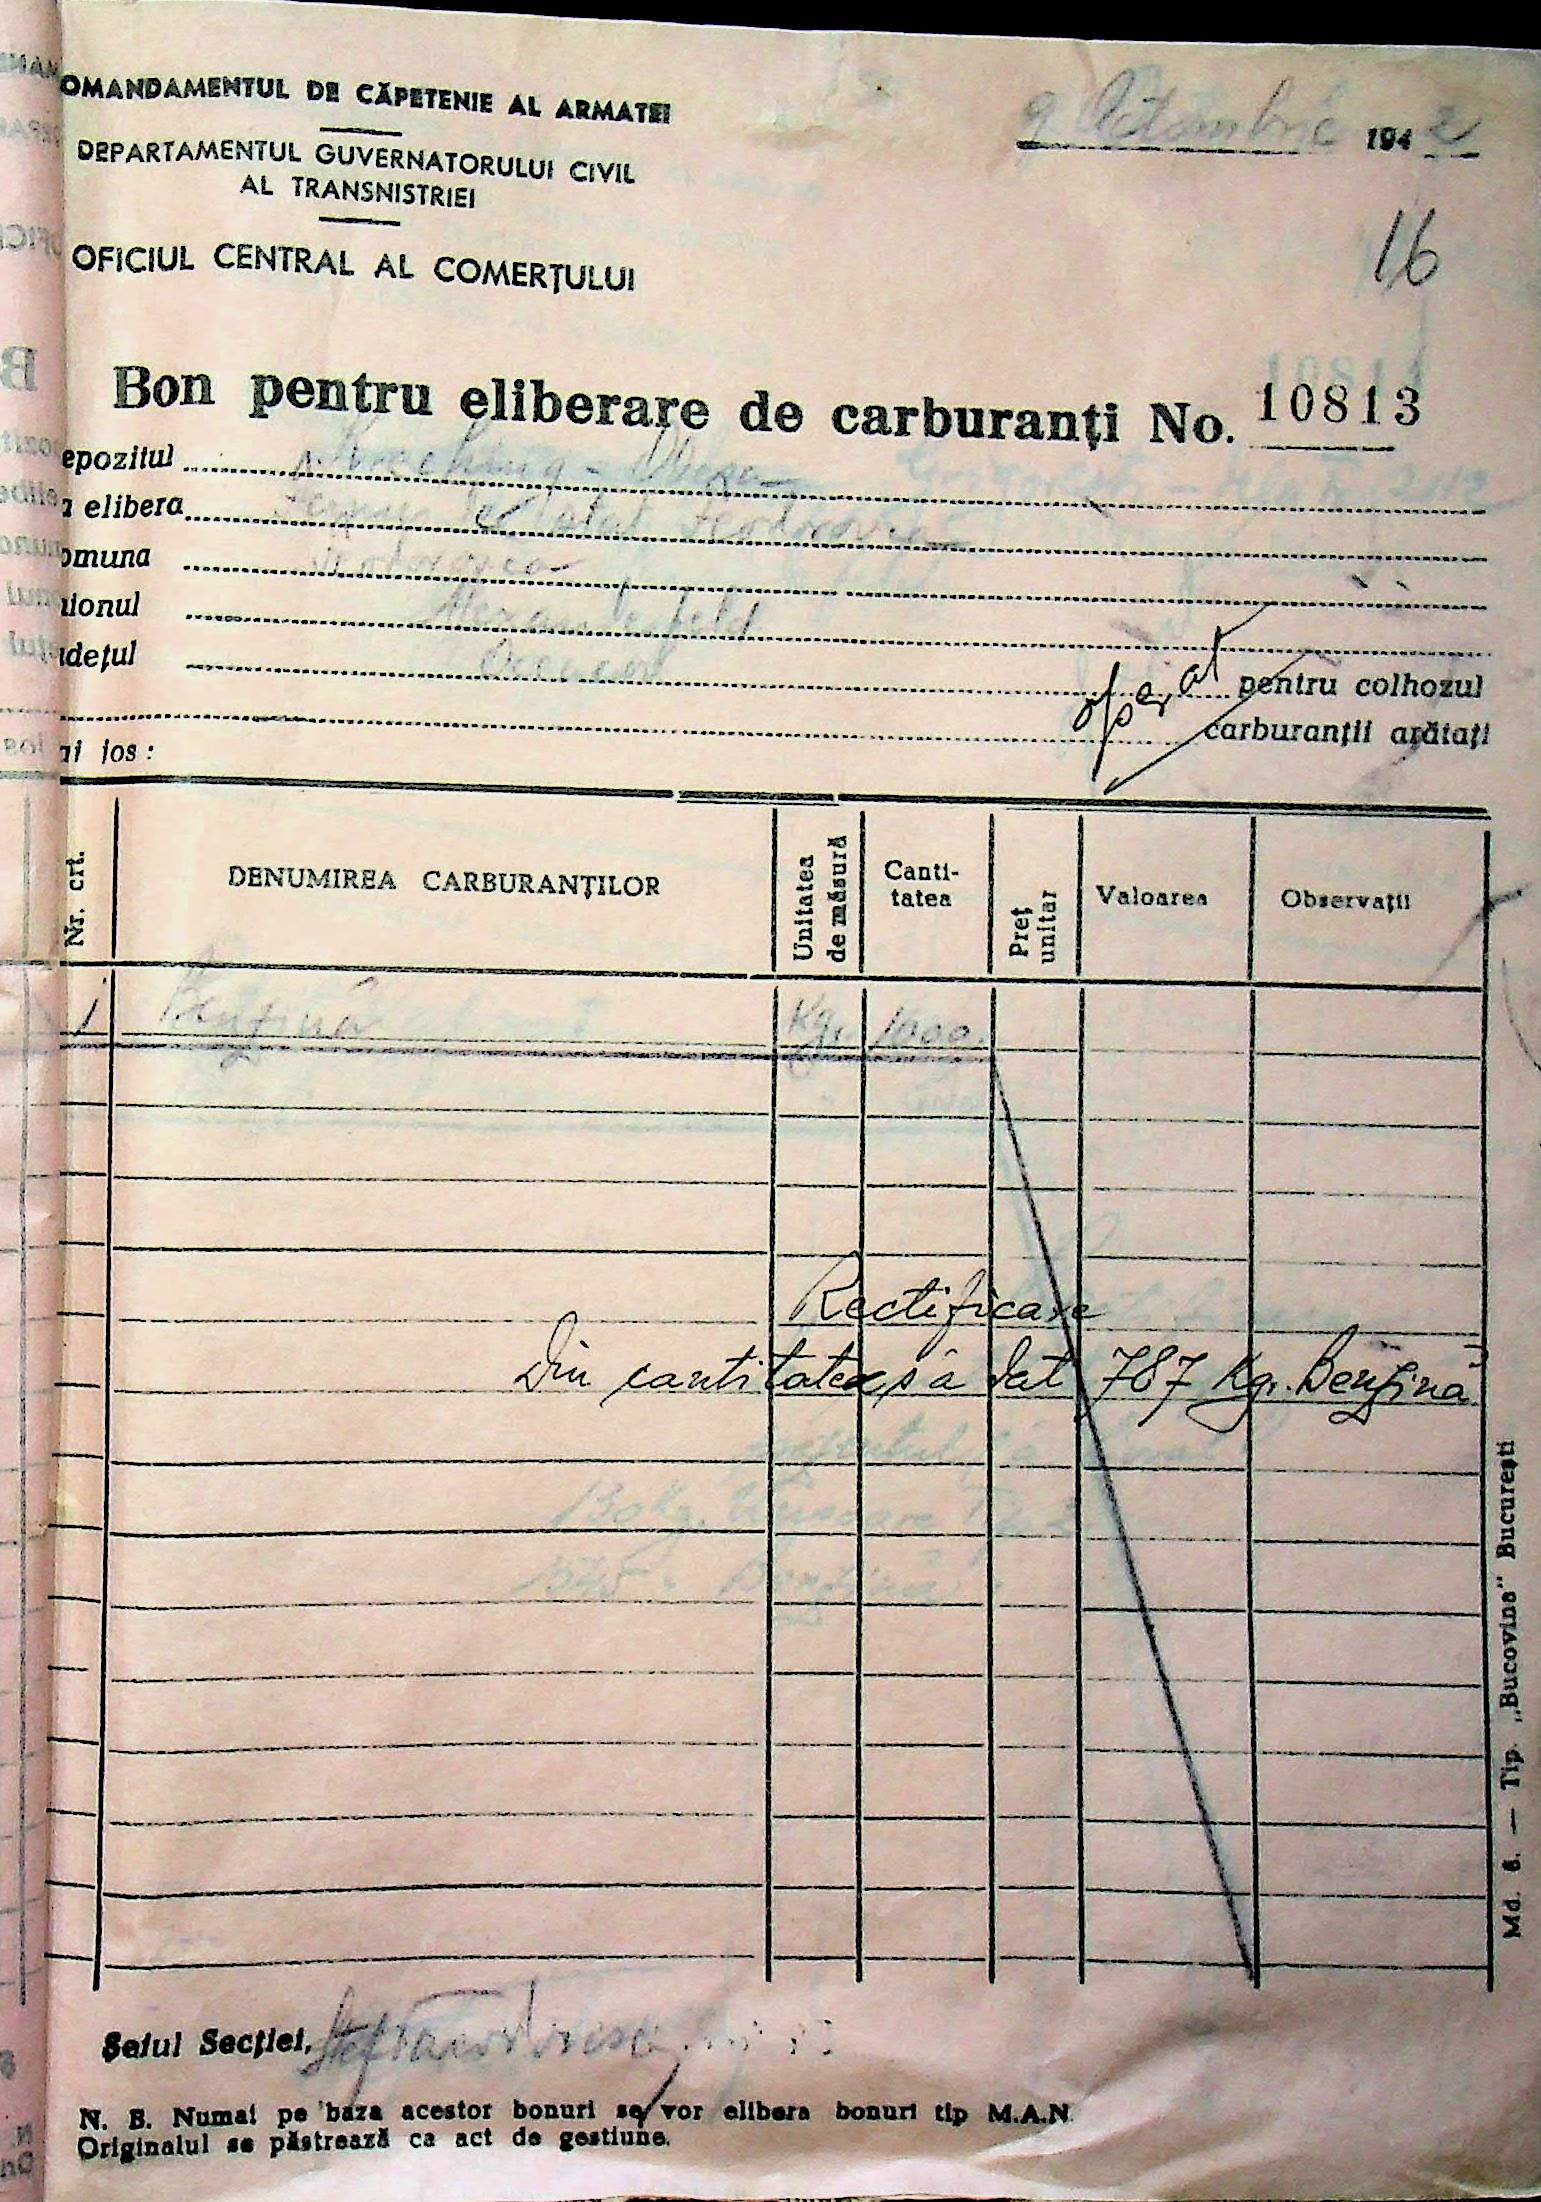 OMANDAMENTUL DE CĂPETENIE AL ARMATEI
9 Octombrie 1942
DEPARTAMENTUL GUVERNATORULUI CIVIL
AL TRANSNISTRIEI
16
OFICIUL CENTRAL AL COMERȚULUI
Bon pentru eliberare de carburanți No. 10813
epozitul
a elibera
omuna
aionul
udețul
operat pentru colhozul
carburanții arătați
ai jos:
Nr. crt.
DENUMIREA CARBURANȚILOR
Unitatea de măsură
Canti-
tatea
Preț unitar
Valoarea
Observații
1 Benzină Kg. 1000
Rectificare
Din cantitatea s'a dat 787 Kg. Benzină
Șeful Secției,
N. B. Numai pe baza acestor bonuri se vor elibera bonuri tip M.A.N
Originalul se păstrează ca act de gestiune.
Md. 6. — Tip. „Bucovina" București